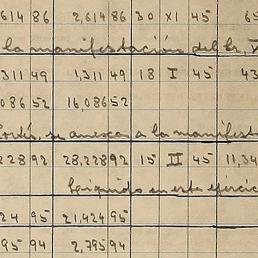 614 86 2,614 86 30 XI 45 65
la manifestación del Sr. V
311 49 1,311 49 18 I 45 43
086 52 16,086 52
se anexa a la manifest
228 92 28,228 92 15 II 45 11,34
en este ejercic
24 95 21,424 95
95 94 2,795 94